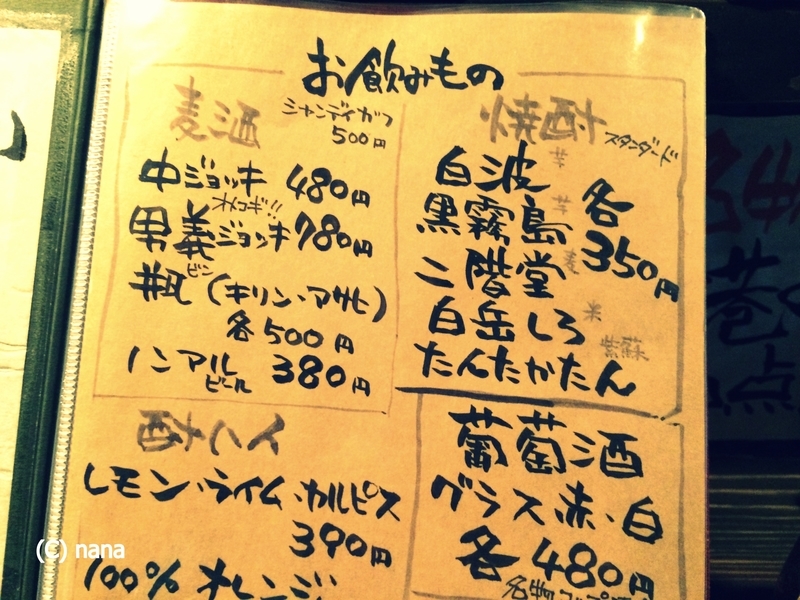 お飲みもの
麦酒
シャンディガフ
500円
中ジョッキ 480円
オトコギ!!
男義ジョッキ 780円
ビン
瓶(キリン・アサヒ)
各500円
ノンアル
ビール 380円
酎ハイ
レモン・ライム・カルピス
390円
100% オレンジ
焼酎
スタンダード
白波 芋
黒霧島 芋
二階堂 麦
白岳しろ 米
たんたかたん 紫蘇
各
350円
葡萄酒
グラス赤・白
各480円
(C) nana